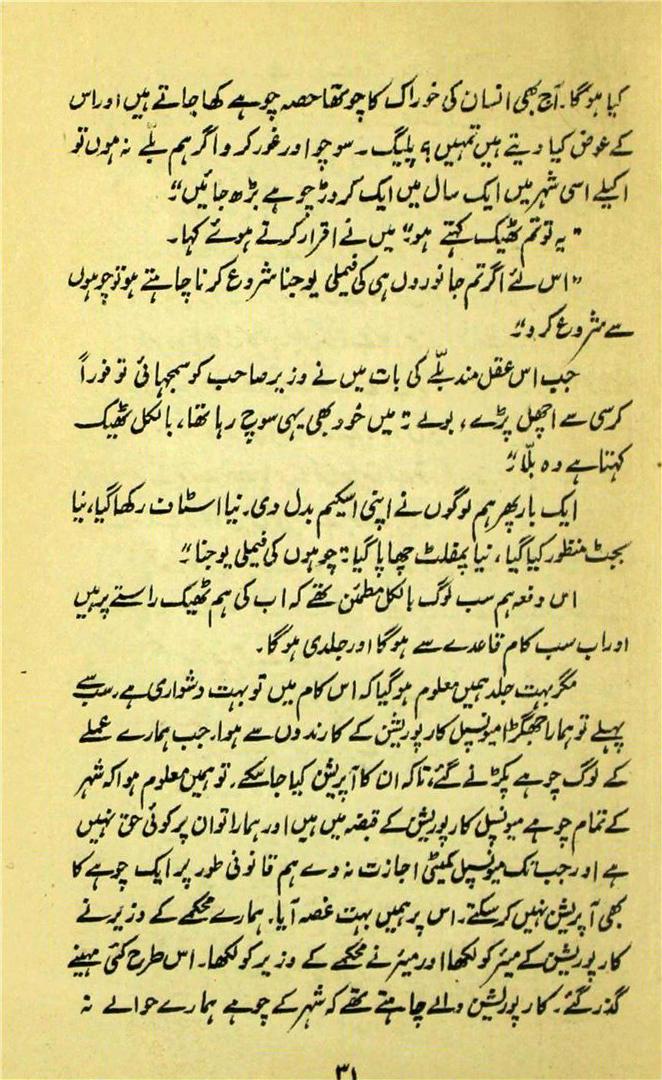 کیا ہوگا۔ آج بھی انسان کی خوراک کا چوتھا حصہ چوہے کھا جاتے ہیں اور اس
کے عوض کیا دیتے ہیں تمہیں؟ پلیگ۔ سوچو اور غور کرو اگر ہم بلّے نہ ہوں تو
اکیلے اسی شہر میں ایک سال میں ایک کروڑ چوہے بڑھ جائیں"
"یہ تو تم ٹھیک کہتے ہو" میں نے اقرار کرتے ہوئے کہا۔
"اس لئے اگر تم جانوروں ہی کی فیملی یوجنا شروع کرنا چاہتے ہو تو چوہوں
سے شروع کرو"
جب اس عقل مند بلّے کی بات میں نے وزیر صاحب کو سمجھائی تو فوراً
کرسی سے اچھل پڑے، بولے "میں خود بھی یہی سوچ رہا تھا، بالکل ٹھیک
کہتا ہے وہ بلّا"
ایک بار پھر ہم لوگوں نے اپنی اسکیم بدل دی۔ نیا اسٹاف رکھا گیا، نیا
بجٹ منظور کیا گیا، نیا پمفلٹ چھاپا گیا "چوہوں کی فیملی یوجنا"
اس دفعہ ہم سب لوگ بالکل مطمئن تھے کہ اب کی ہم ٹھیک راستے پر ہیں
اور اب سب کام قاعدے سے ہوگا اور جلدی ہوگا۔
مگر بہت جلد ہمیں معلوم ہوگیا کہ اس کام میں تو بہت دشواری ہے۔ سب سے
پہلے تو ہمارا جھگڑا میونسپل کارپوریشن کے کارندوں سے ہوا۔ جب ہمارے عملے
کے لوگ چوہے پکڑنے گئے، تاکہ ان کا آپریشن کیا جاسکے۔ تو ہمیں معلوم ہوا کہ شہر
کے تمام چوہے میونسپل کارپوریشن کے قبضہ میں ہیں اور ہمارا تو ان پر کوئی حق نہیں
ہے اور جب تک میونسپل کمیٹی اجازت نہ دے ہم قانونی طور پر ایک چوہے کا
بھی آپریشن نہیں کرسکتے۔ اس پر ہمیں بہت غصہ آیا۔ ہمارے محکمے کے وزیر نے
کارپوریشن کے میئر کو لکھا اور میئر نے محکمے کے وزیر کو لکھا۔ اس طرح کئی مہینے
گذر گئے۔ کارپوریشن والے چاہتے تھے کہ شہر کے چوہے ہمارے حوالے نہ
۳۱